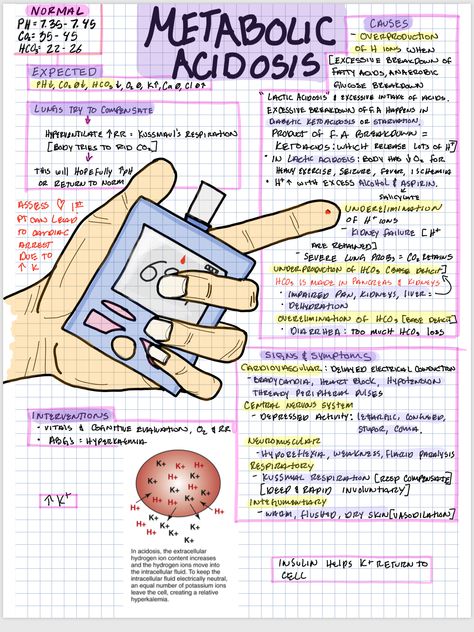 NORMAL
PH = 7.35 - 7.45
CO₂ = 35 - 45
HCO₃ = 22 - 26
METABOLIC
ACIDOSIS
EXPECTED
PH↓, CO₂ Ø↓, HCO₃↓, O₂ Ø, K↑, Ca Ø, Cl Ø↑
LUNGS TRY TO COMPENSATE
HYPERVENTILATE ↑RR = KUSSMAUL'S RESPIRATION
[BODY TRIES TO RID CO₂]
THIS WILL HOPEFULLY ↑PH
OR RETURN TO NORM
ASSESS ♡ 1ST
PT CAN LEAD
TO CARDIAC
ARREST
DUE TO
↑ K
CAUSES
- OVERPRODUCTION
OF H IONS WHEN
[EXCESSIVE BREAKDOWN OF
FATTY ACIDS, ANAEROBIC
GLUCOSE BREAKDOWN
LACTIC ACIDOSIS & EXCESSIVE INTAKE OF ACIDS.
EXCESSIVE BREAKDOWN OF F.A HAPPENS IN
DIABETIC KETOACIDOSIS OR STARVATION.
PRODUCT OF F.A BREAKDOWN =
KETOACIDS: WHICH RELEASE LOTS OF H⁺
• IN LACTIC ACIDOSIS: BODY HAS ↓O₂ FOR
HEAVY EXERCISE, SEIZURE, FEVER, ISCHEMIA
• H⁺↑ WITH EXCESS ALCOHOL & ASPIRIN.
SALICYLATE
UNDERELIMINATION
OF H⁺ IONS
- KIDNEY FAILURE [H⁺
ARE RETAINED]
- SEVERE LUNG PROBS = CO₂ RETAINS
UNDERPRODUCTION OF HCO₃ (BASE DEFICIT)
HCO₃ IS MADE IN PANCREAS & KIDNEYS
- IMPAIRED PAN, KIDNEYS, LIVER =
DEHYDRATION
OVERELIMINATION OF HCO₃ [BASE DEFICIT]
- DIARRHEA: TOO MUCH HCO₃ LOSS
SIGNS & SYMPTOMS
CARDIOVASCULAR: DELAYED ELECTRICAL CONDUCTION
- BRADYCARDIA, HEART BLOCK, HYPOTENTION
THREADY PERIPHERAL PULSES
CENTRAL NERVOUS SYSTEM
- DEPRESSED ACTIVITY: LETHARGIC, CONFUSED,
STUPOR, COMA.
NEUROMUSCULAR
- HYPOREFLEXIA, WEAKNESS, FLACCID PARALYSIS
RESPIRATORY
- KUSSMAL RESPIRATION [RESP COMPENSATE]
[DEEP & RAPID INVOLUNTARY]
INTEGUMENTARY
- WARM, FLUSHED, DRY SKIN [VASODILATION]
INTERVENTIONS
• VITALS & COGNITIVE EVALUATION, O₂ & RR
• ABG'S = HYPERKALEMIA
↑K⁺
K+
K+
K+
H+
H+
K+
H+
K+
H+
H+
K+
H+
K+
H+
K+
In acidosis, the extracellular
hydrogen ion content increases
and the hydrogen ions move into
the intracellular fluid. To keep the
intracellular fluid electrically neutral,
an equal number of potassium ions
leave the cell, creating a relative
hyperkalemia.
INSULIN HELPS K+ RETURN TO
CELL